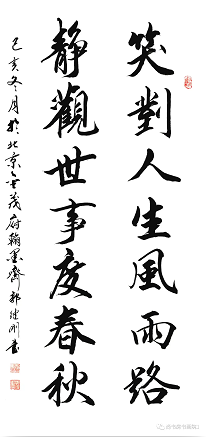 笑對人生風雨路
静觀世事度春秋
己亥冬月於北京金茂府翰墨齋郭刚書